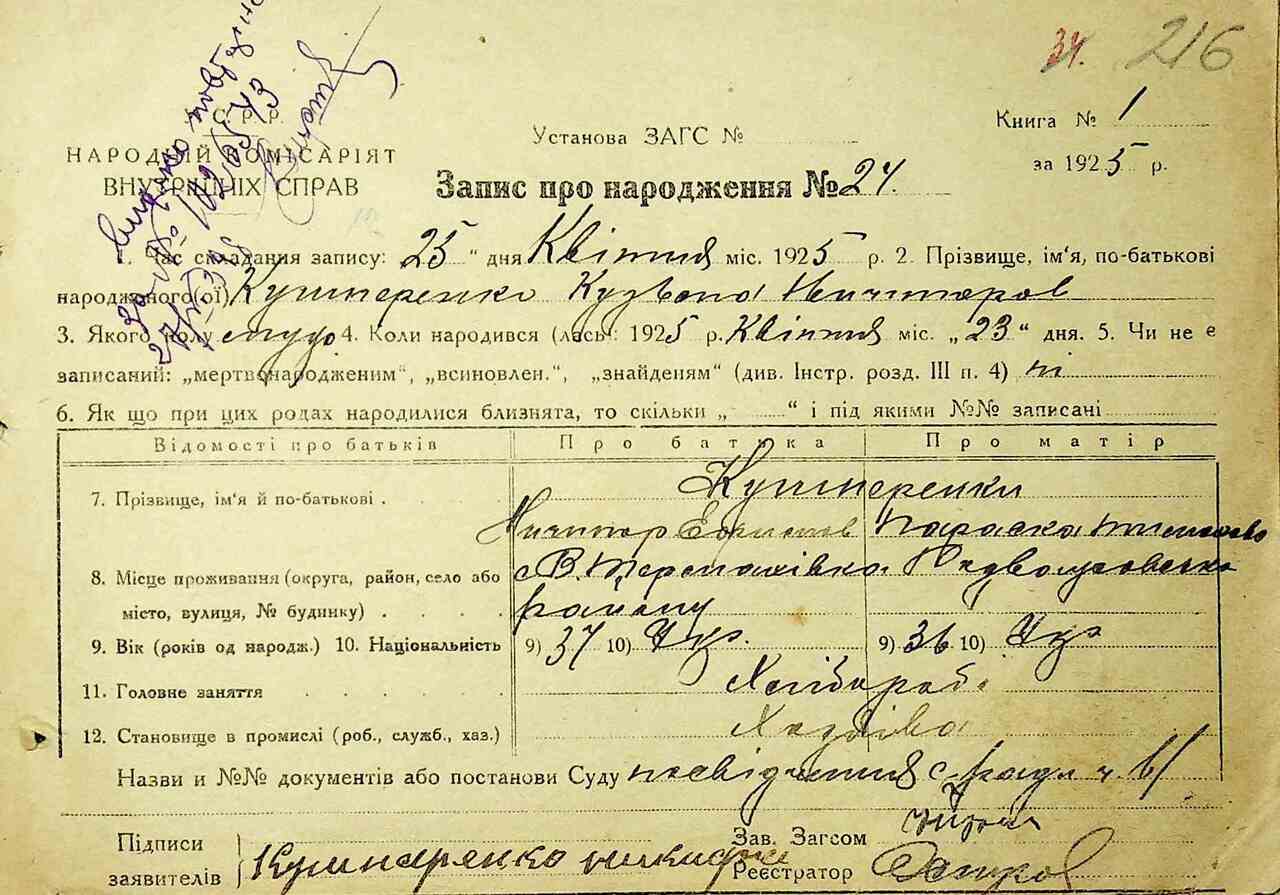 34. 216
С. Р. Р.
НАРОДНИЙ КОМІСАРІЯТ
ВНУТРІШНІХ СПРАВ
Установа ЗАГС №
Книга № 1
за 1925 р.
Запис про народження № 24.
1. Час складання запису: 25 " дня Квітня міс. 1925 р. 2. Прізвище, ім'я, по-батькові
народженого(ої) Кушнеренко
3. Якого полу 4. Коли народився (лась): 1925 р. Квітня міс. „23" дня. 5. Чи не є
записаний: „мертвонародженим", „всиновлен.", „знайденям" (див. Інстр. розд. III п. 4) ні
6. Як що при цих родах народилися близнята, то скільки „ " і під якими №№ записані
Відомості про батьків Про батька Про матір
7. Прізвище, ім'я й по-батькові . Кушнеренки
Параска
8. Місце проживання (округа, район, село або
місто, вулиця, № будинку) . району
9. Вік (років од народж.) 10. Національність 9) 37 10) Укр. 9) 36 10) Укр
11. Головне заняття Хлібороб.
12. Становище в промислі (роб., служб., хаз.) Хазяїва
Назви и №№ документів або постанови Суду посвідчення с/ради ч
Підписи
заявителів
Зав. Загсом
Реєстратор